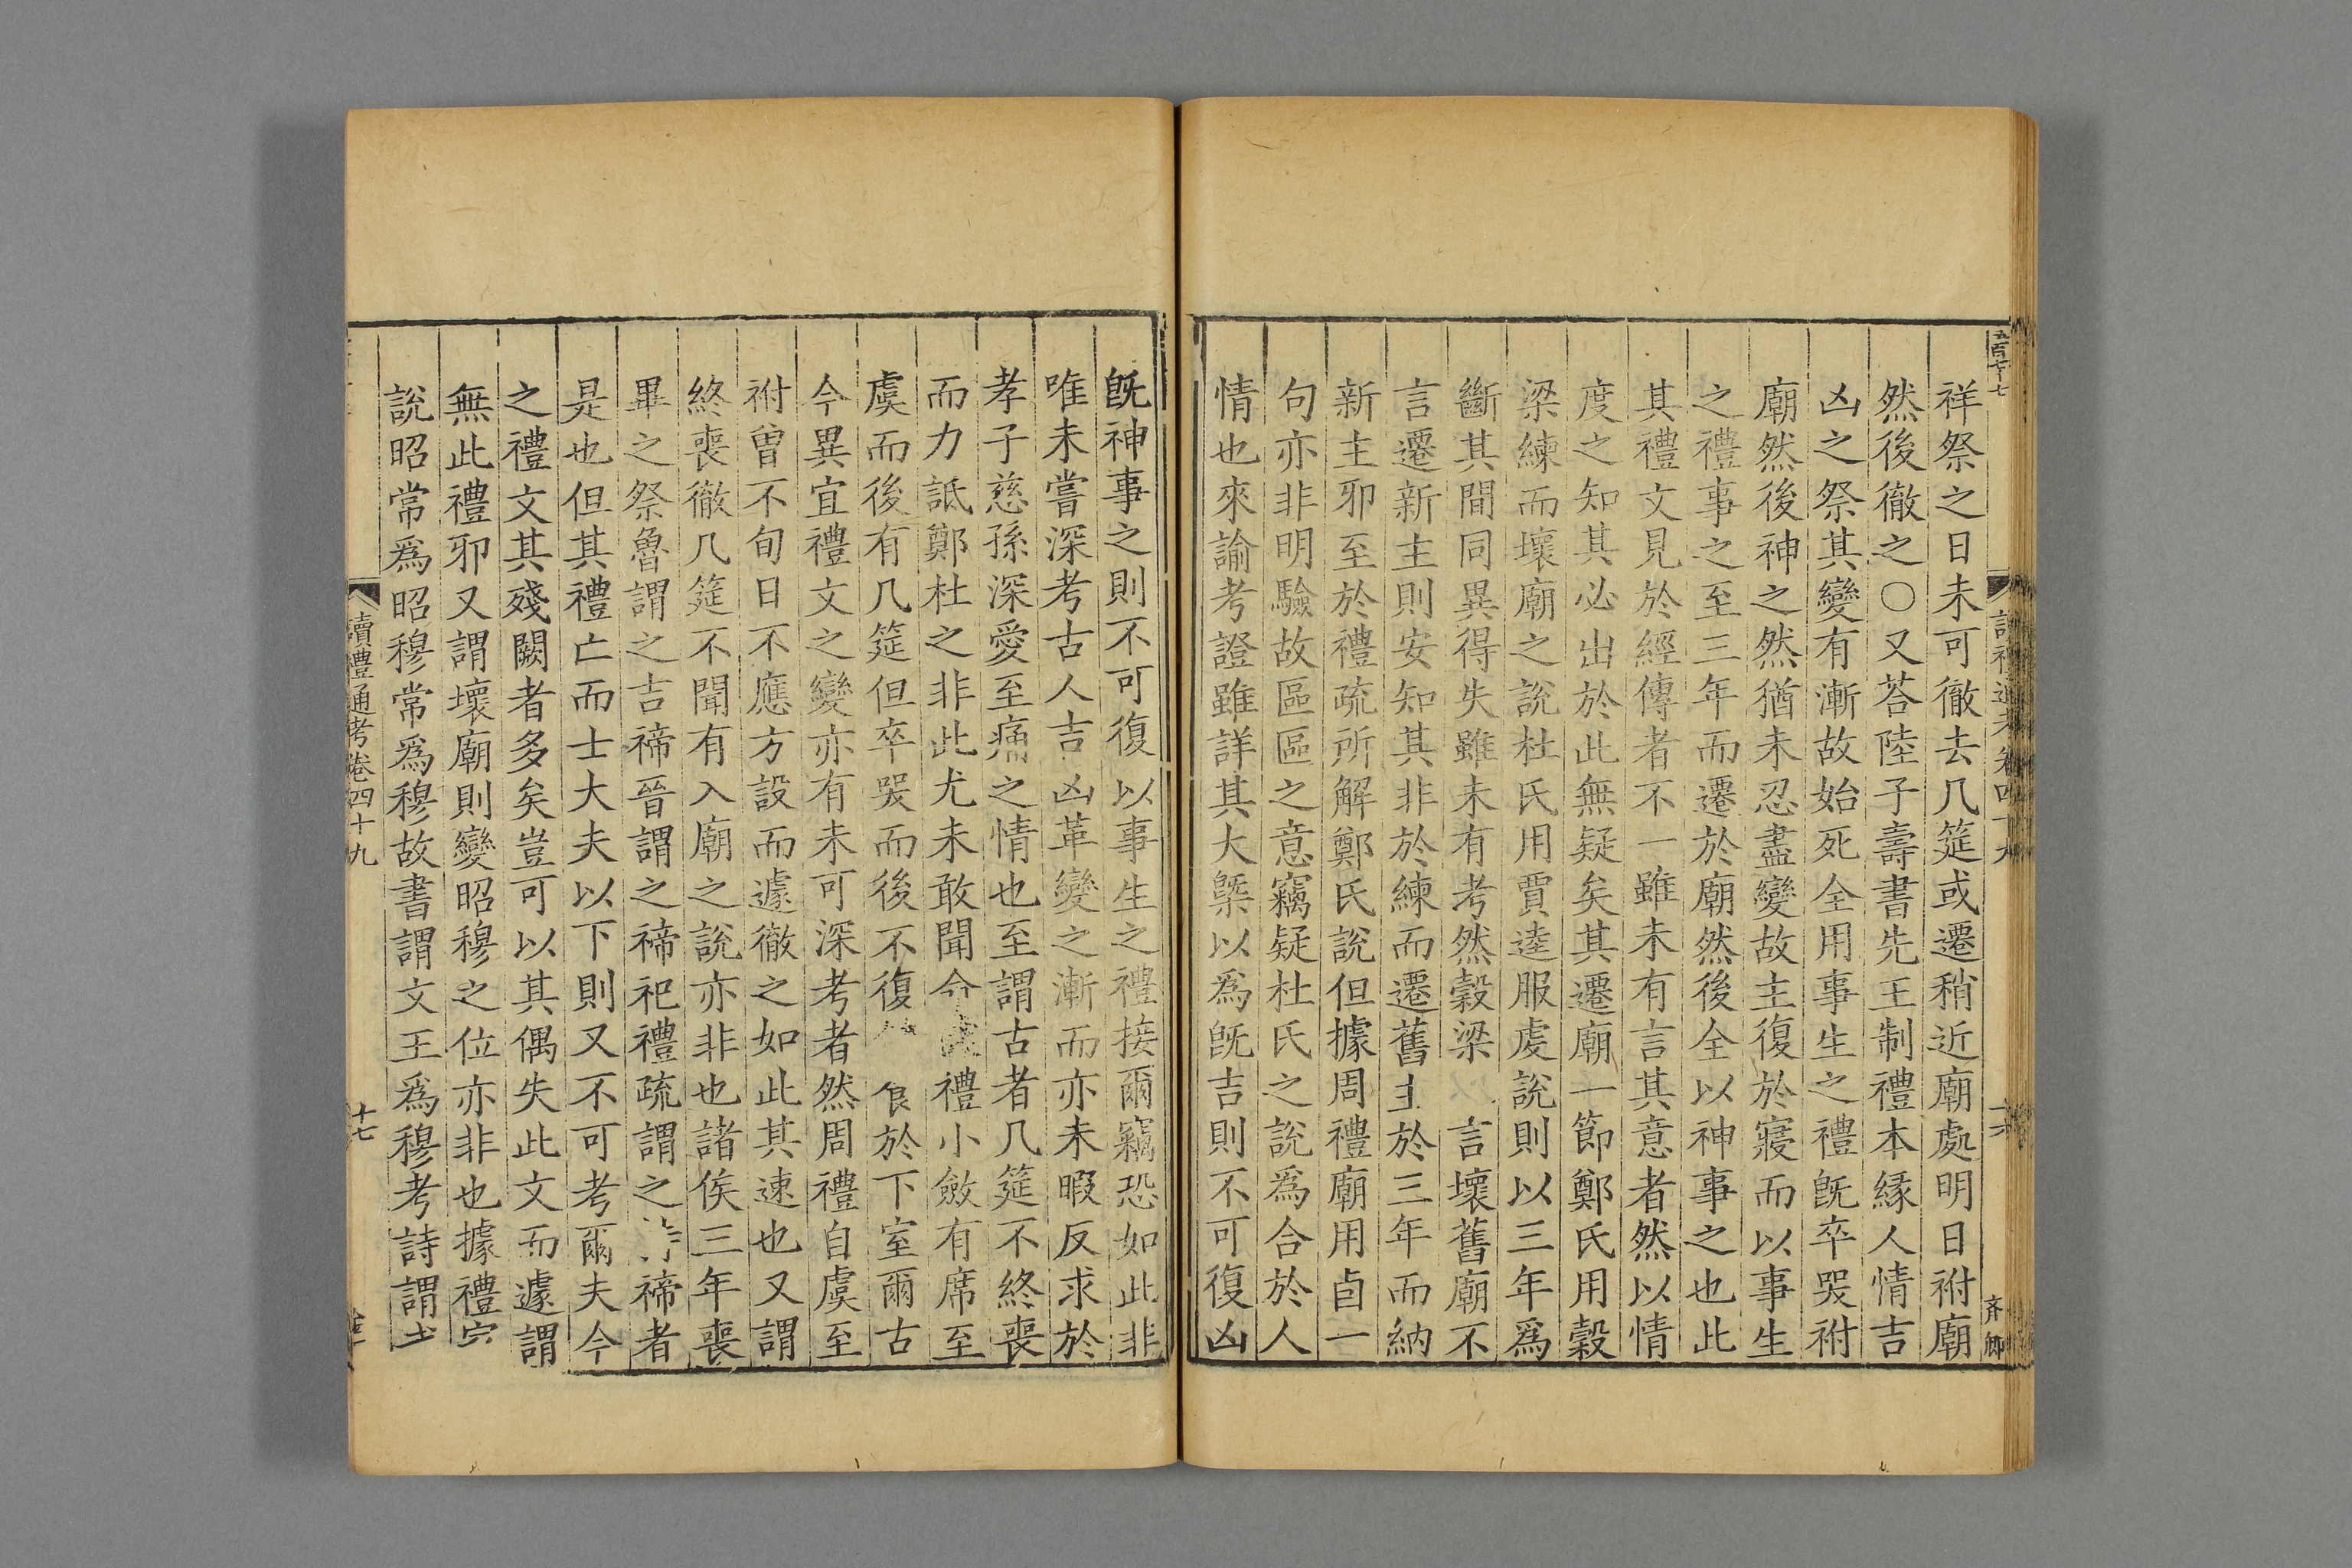 五百七十七
齊卿
祥祭之日未可徹去几筵或遷稍近廟處明日祔廟
然後徹之○又荅陸子壽書先王制禮本緣人情吉
凶之祭其變有漸故始死全用事生之禮旣卒哭祔
廟然後神之然猶未忍盡變故主復於寢而以事生
之禮事之至三年而遷於廟然後全以神事之也此
其禮文見於經傳者不一雖未有言其意者然以情
度之知其必出於此無疑矣其遷廟一節鄭氏用穀
梁練而壞廟之說杜氏用賈逵服虔說則以三年爲
斷其間同異得失雖未有考然穀梁言壞舊廟不
言遷新主則安知其非於練而遷舊主於三年而納
新主邪至於禮疏所解鄭氏說但據周禮廟用卣一
句亦非明驗故區區之意竊疑杜氏之說爲合於人
情也來諭考證雖詳其大槩以爲旣吉則不可復凶
旣神事之則不可復以事生之禮接爾竊恐如此非
唯未嘗深考古人吉凶革變之漸而亦未暇反求於
孝子慈孫深愛至痛之情也至謂古者几筵不終喪
而力詆鄭杜之非此尤未敢聞今禮小斂有席至
虞而後有几筵但卒哭而後不復於下室爾古
今異宜禮文之變亦有未可深考者然周禮自虞至
祔曾不旬日不應方設而遽徹之如此其速也又謂
終喪徹几筵不聞有入廟之說亦非也諸侯三年喪
畢之祭魯謂之吉禘晉謂之禘祀禮疏謂之禘者
是也但其禮亡而士大夫以下則又不可考爾夫今
之禮文其殘闕者多矣豈可以其偶失此文而遽謂
無此禮邪又謂壞廟則變昭穆之位亦非也據禮家
說昭常爲昭穆常爲穆故書謂文王爲穆考詩謂
讀禮通考卷四十九
十七